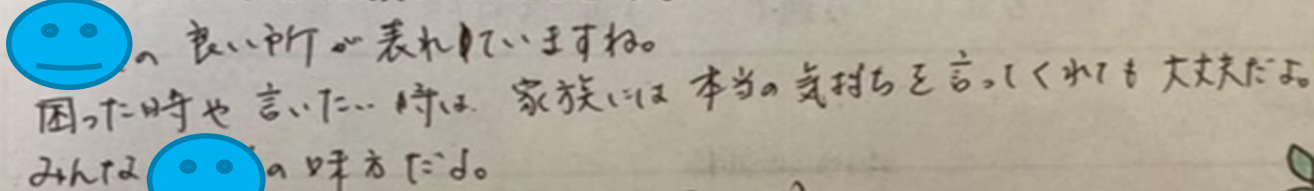 の良い所が表れていますね。
困った時や言いたい時は 家族には本当の気持ちを言ってくれても大丈夫だよ。
みんな の味方だよ。